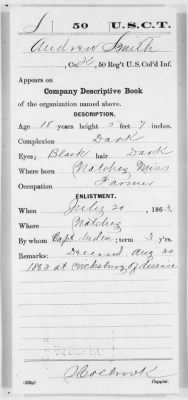 S 50 U.S.C.T.
Andrew Smith
, Co. K, 50 Reg't U.S. Col'd Inf.
Appears on
Company Descriptive Book
of the organization named above.
DESCRIPTION.
Age 18 years; height 5 feet 7 inches.
Complexion Dark
Eyes; Black hair Dark
Where born Natchez Miss
Occupation Farmer
ENLISTMENT.
When July 20, 1863.
Where Natchez
By whom Capt. ; term 3 y'rs.
Remarks: Deceased Aug 30
1863 at Vicksburg of disease
Holbrook
Copyist.